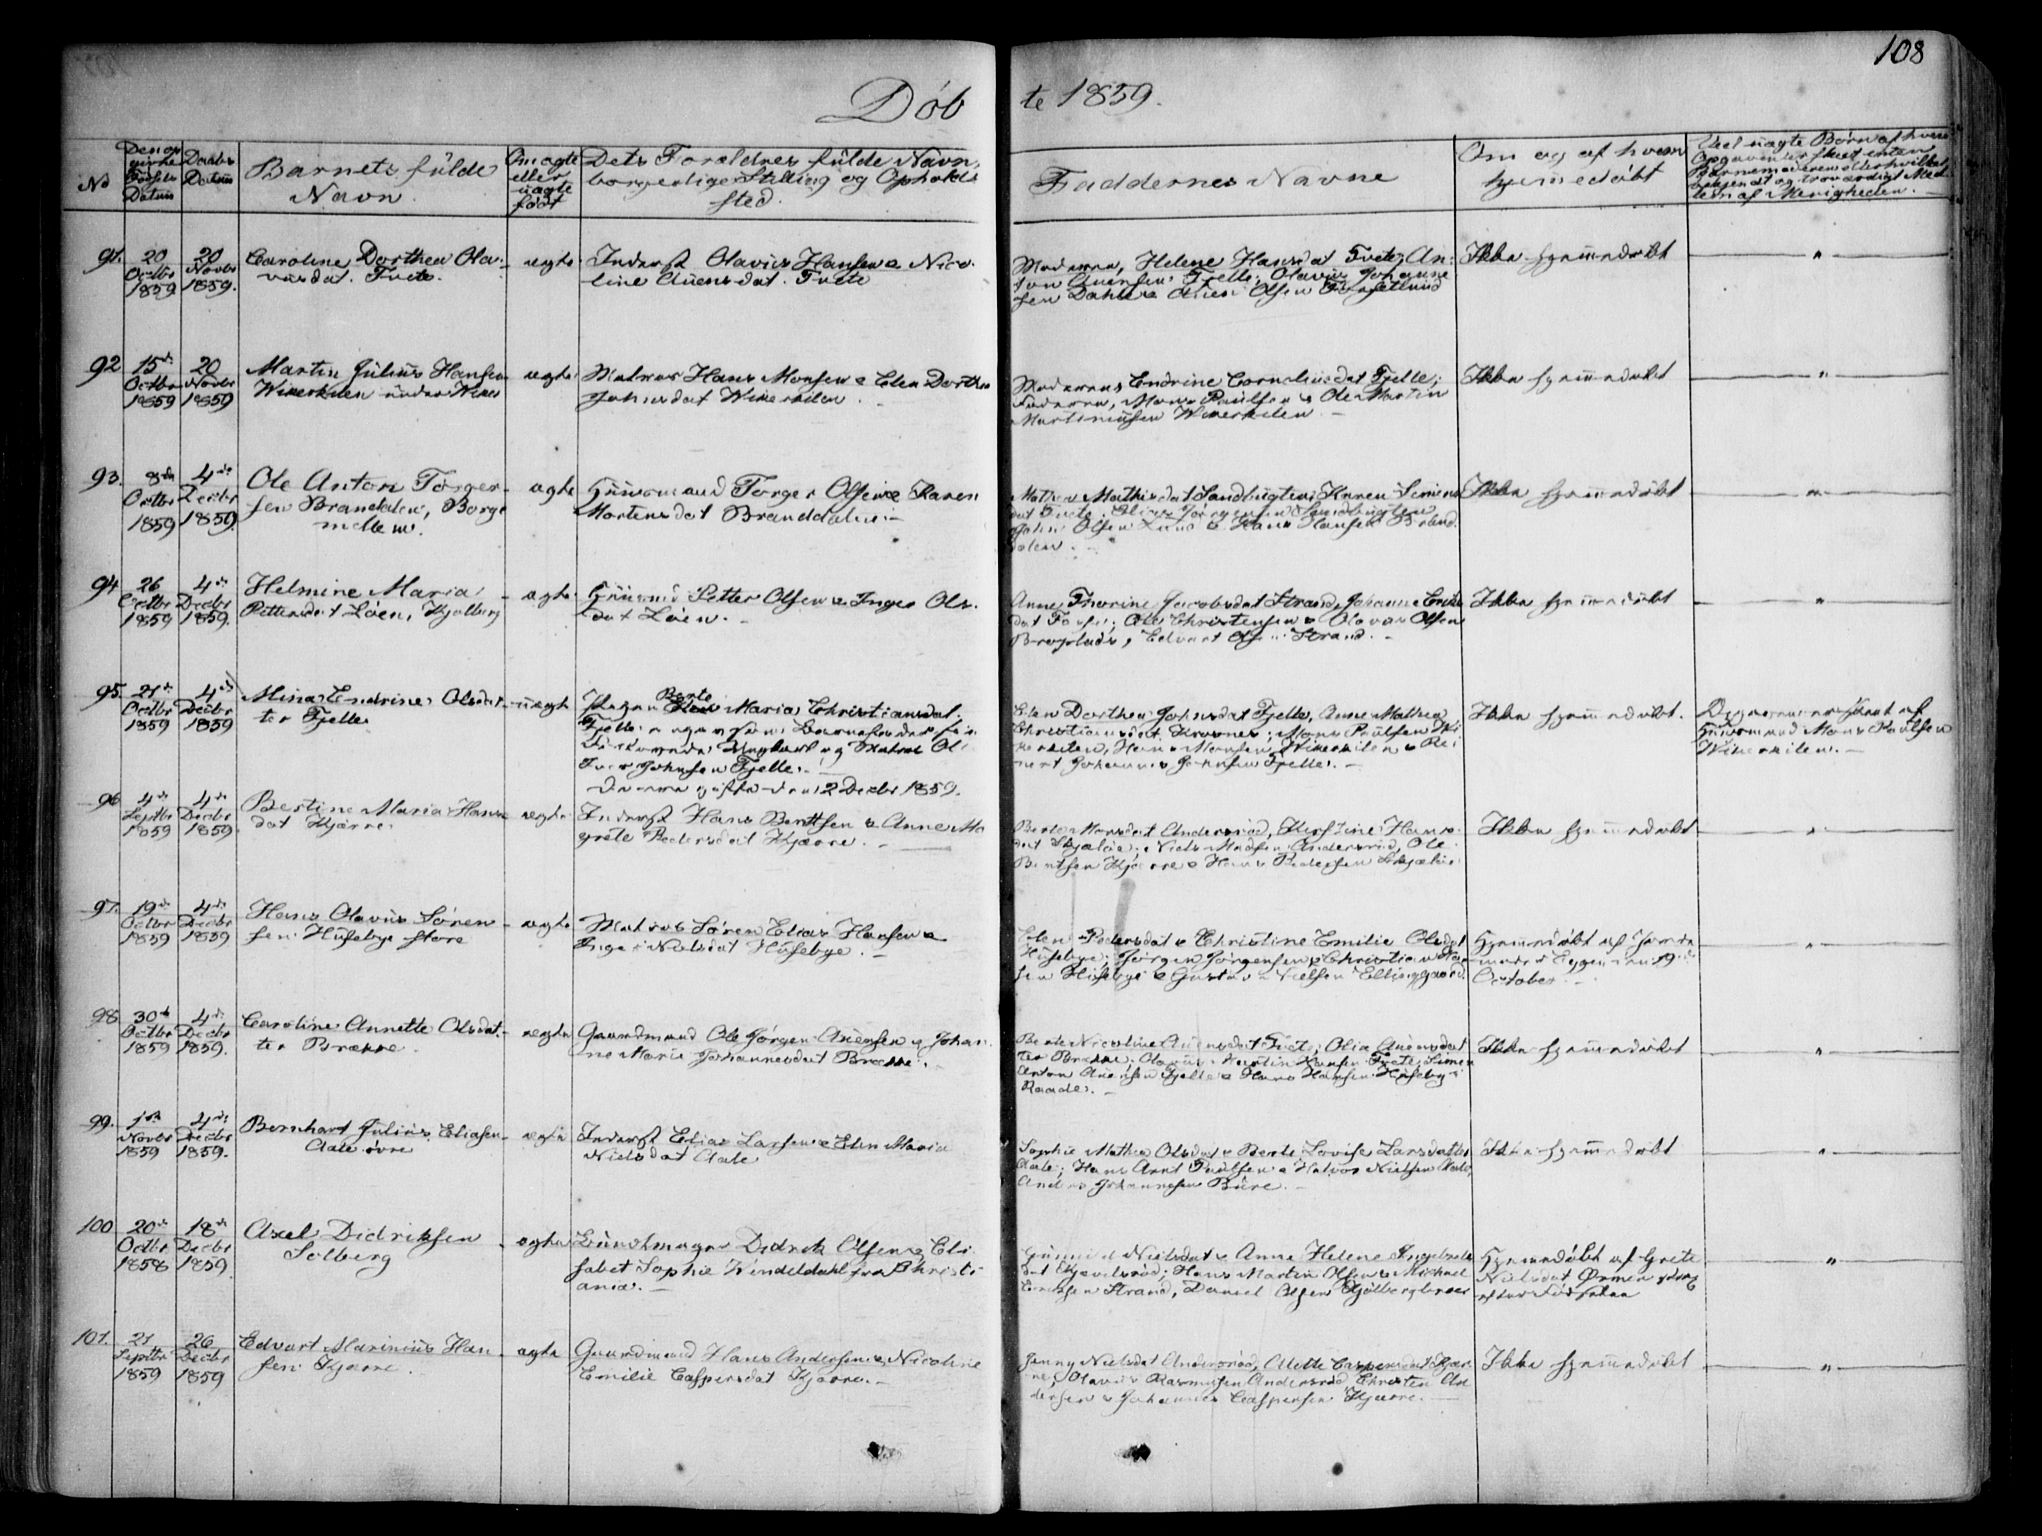 108
Döb te 1859.
No
Den opgivne Födsels Datum
Daabs Datum
Barnets fulde Navn.
Om ægte eller uægte født
Dets Forældres fulde Navn, borgerlige Stilling og Opholdssted.
Faddernes Navne
Om og af hvem hjemmedøbt
Ved uægte Børn af hvem
Opgaven er skeet enten
91. 20 Octbr 1859 20 Novbr 1859.
Caroline Dorthea Ola-
vusdat. Tvete.
ægte
Inderst Olavus Hansen & Nico-
line Auensdat. Tvete
Moderen, Helene Hansdat Tvete, An-
ton Auensen Fjelle, Olavus Johanne
sen Dahle & Auen Olsen
Ikke hjemmedøbt
92 15de Octbr 1859 20 Novbr 1859
Martin Julius Hansen
Wikerkilen under Wiker
ægte
Matros Hans Monsen & Elen Dorthea
Johnsdat Wikerkilen.
Moderen, Endrine Corneliusdat Fjelle;
Faderen, Mons Paulsen & Ole Martin
Martiniussen Wikerkilen.
Ikke hjemmedøbt
93. 8de Octbr 1859 4de Decbr 1859.
Ole Anton Torger-
sen Brandalen, Borge
mellem.
ægte
Huusmand Torger Olsen & Karen
Mortensdat Branddalen.
Mathea Mathisdat Sandbugten, Karen Simens
dat Tvete, Oliver Jörgensen Sandbugten
John Olsen Lund & Hans Hansen Brand
dalen.
Ikke hjemmedøbt
94 26 Octbr 1859 4de Decbr 1859.
Helmine Maria
Pettersdat Löen, Kjølberg
ægte
Huusmd Petter Olsen & Inger Ols-
dat Löen.
Anne Thorine Jacobsdat Strand, Johanne Eriks
dat; Ole Christensen & Olavas Olsen
Edvart Olsen Strand.
Ikke hjemmedøbt
95. 21de Octbr 1859 4de Decbr 1859
Mina Endrine Olsdat-
ter Fjelle
uægte
Pigen Berte Maria Christiansdat.
Fjelle
Ungkarl og Matros Ole
Iver Johnsen Fjelle.
De ere gifte den 2 Decbr 1859.
Elen Dorthea Johnsdat Fjelle, Anne Mathea
Christiansdat Krosnes; Mons Paulsen Wi-
kerkilen, Hans Monsen Wikerkilen & Rei-
nert Johannes Johnsen Fjelle.
Ikke hjemmedøbt.
Huusmand Mons Paulsen
Wikerkilen.
96 4de Septbr 1859 4de Decbr 1859.
Bestine Maria Hans
dat Kjærre.
ægte
Inderst Hans Berntsen & Anne Ma
grete Pedersdat Kjærre.
Berte Marsdat Andersröd, Kirstine Hans-
dat Skjælöe, Niels Madsen Andersröd, Ole
Berntsen Kjærre & Hans Pedersen Skjælöe.
Ikke hjemmedøbt
97. 19de Octbr 1859 4de Decbr 1859
Hans Olavus Sören-
sen Husebye store
ægte
Matros Sören Elias Hansen &
Inger Nielsdat Husebye.
Elen Pedersdat & Christine Emilie Olsdat
Husebye; Jørgen Jørgensen & Christian Han-
sen Husebye & Gustav Nielsen Ellinggaard
Hjemmedøbt af Jorde-
moder Eggen den 19de
October.
98. 30te Octbr 1859 4de Decbr 1859.
Caroline Annette Olsdat-
ter Brække.
ægte
Gaardmand Ole Jørgen Auensen og Johan-
ne Marie Johannesdat Brække.
Berte Nicoline Auensdat Tvete, Olia Auensdat
ter Brække; Olavus Martin Hansen Tvete, Simen
Anton Auensen Fjelle & Hans Hansen Huseby i
Raade.
Ikke hjemmedøbt
99. 1ste Novbr 1859 4de Decbr 1859.
Bernhart Julius Eliasen
Aale øvre
ægte
Inderst Elias Larsen & Elen Maria
Nielsdat Aale
Sophie Mathea Olsdat & Berte Lovise Larsdatter
Aale; Hans Arnt Paulsen & Halvor Nielsen Aale,
Anders Johannesen Büre.
Ikke hjemmedøbt
100 20de Octbr 1858 18de Decbr 1859.
Axel Didriksen
Solberg
ægte
Bundtmager Didrik Olsen & Eli-
sabet Sophie Wendeldahl fra Christi-
ania.
Gunnild Nielsdat & Anne Helene Ingebrets
dat; Hans Martin Olsen & Michael
Ericksen Strand, Daniel Olsen Kjølbergbroen
Hjemmedøbt af Grete
Nielsdat Ørmen strax
efter Födselen
101. 21 Septbr 1859 26 Decbr 1859
Edvart Marinius Han-
sen Kjærre.
ægte
Gaardmand Hans Andersen & Nicoline
Emilie Caspersdat Kjærre.
Jenny Nielsdat Andersröd, Alette Caspersdat Kjær-
re, Olavus Rasmusen Andersröd Christen An-
dersen & Johannes Caspersen Kjærre.
Ikke hjemmedøbt